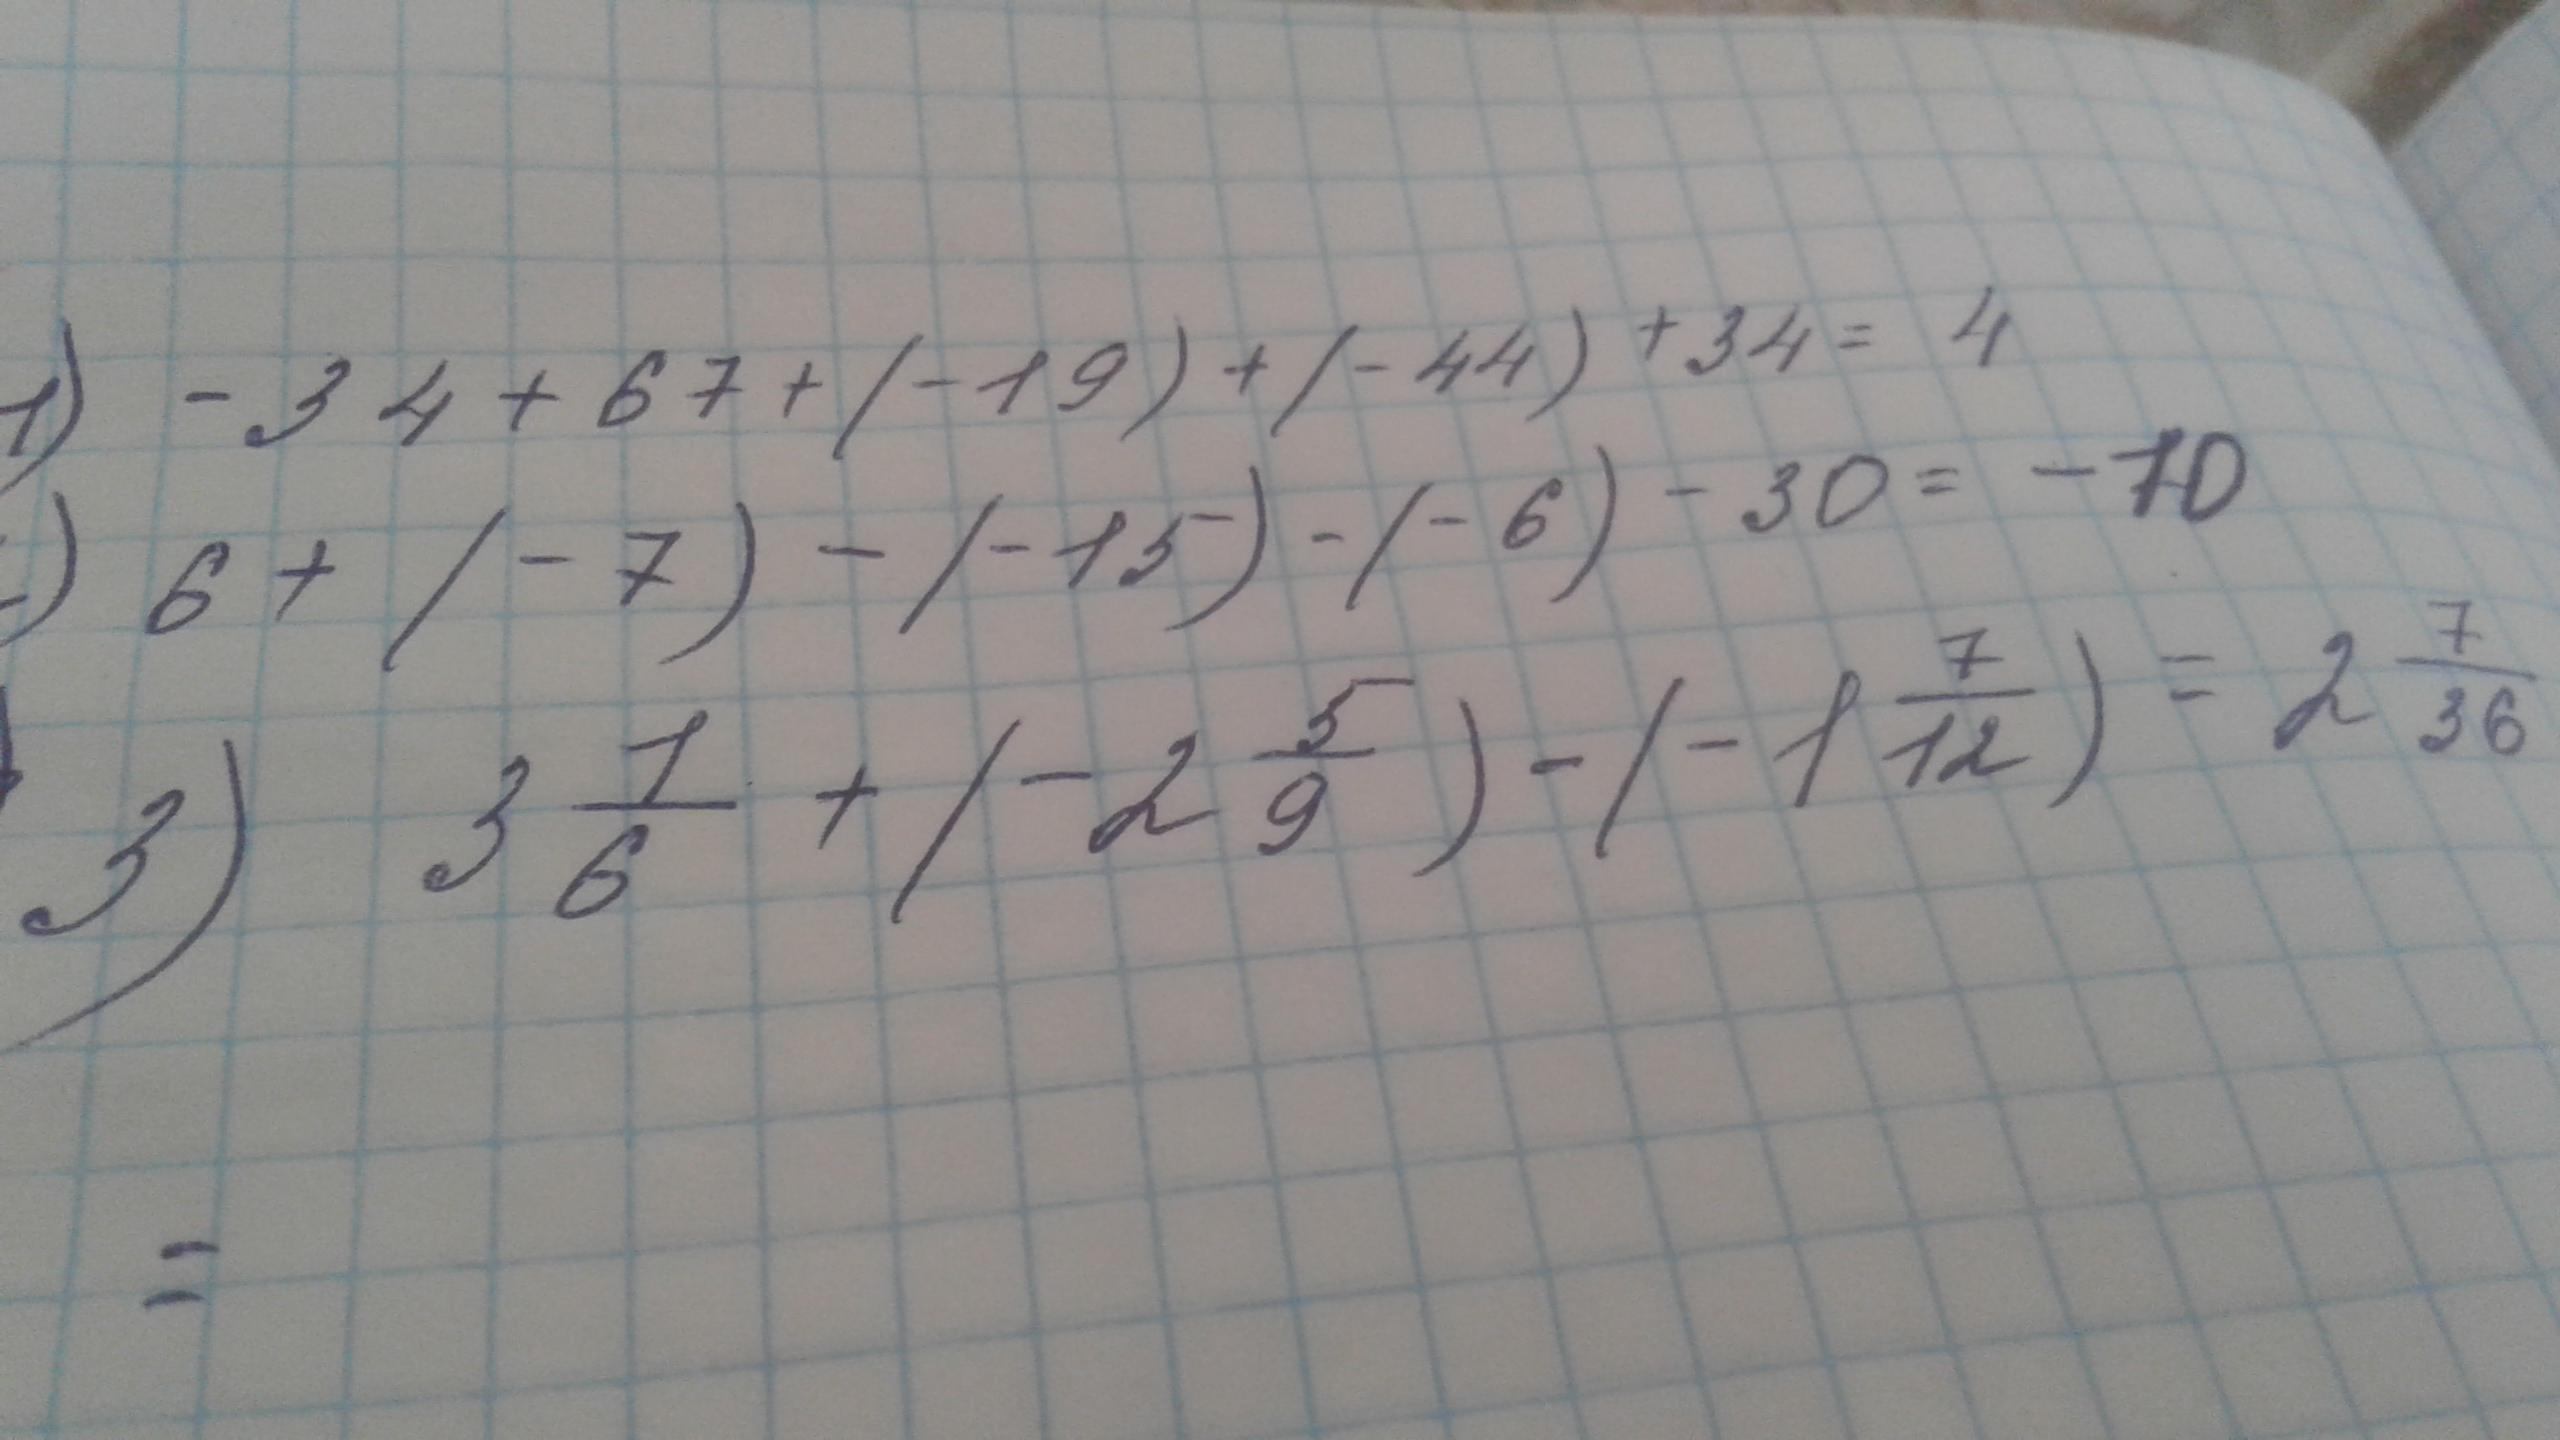 1) -34+67+(-19)+(-44)+34= 4
) 6+(-7)-(-15)-(-6)-30= -10
3) 3 1/6 + (-2 5/9) - (-1 7/12) = 2 7/36
=